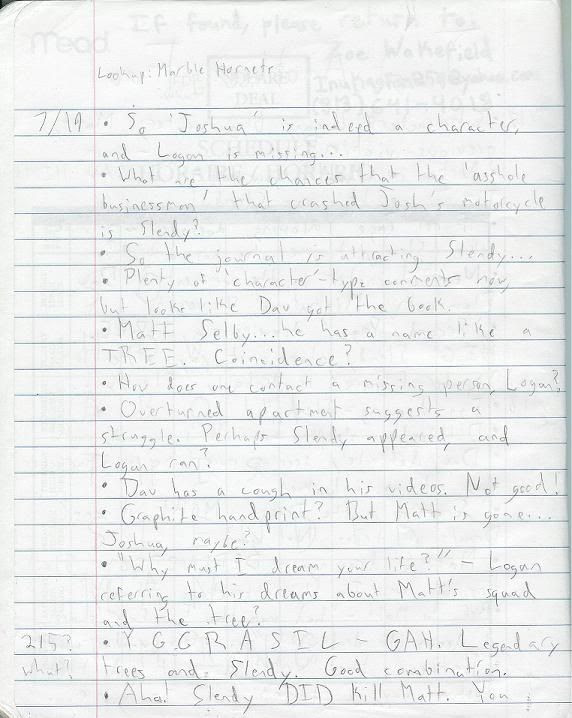 If found, please return to:
Mead
Zoe Wakefield
Lookup: Marble Hornets
DEAL
7/19 • So 'Joshua' is indeed a character,
and Logan is missing...
SCHEDULE
• What are the chances that the 'asshole
businessman' that crashed Josh's motorcycle
is Slendy?
• So the journal is attracting Slendy...
• Plenty of 'character'-type comments now,
but looks like Dav got the book.
• Matt Selby...he has a name like a
TREE. Coincidence?
• How does one contact a missing person, Logan?
• Overturned apartment suggests a
struggle. Perhaps Slendy appeared, and
Logan ran?
• Dav has a cough in his videos. Not good!
• Graphite handprint? But Matt is gone...
Joshua, maybe?
• "Why must I dream your life?" - Logan
referring to his dreams about Matt's squad
and the tree?
215? • Y G G R A S I L - GAH. Legendary
what? trees and Slendy. Good combination.
• Aha! Slendy DID kill Matt. You